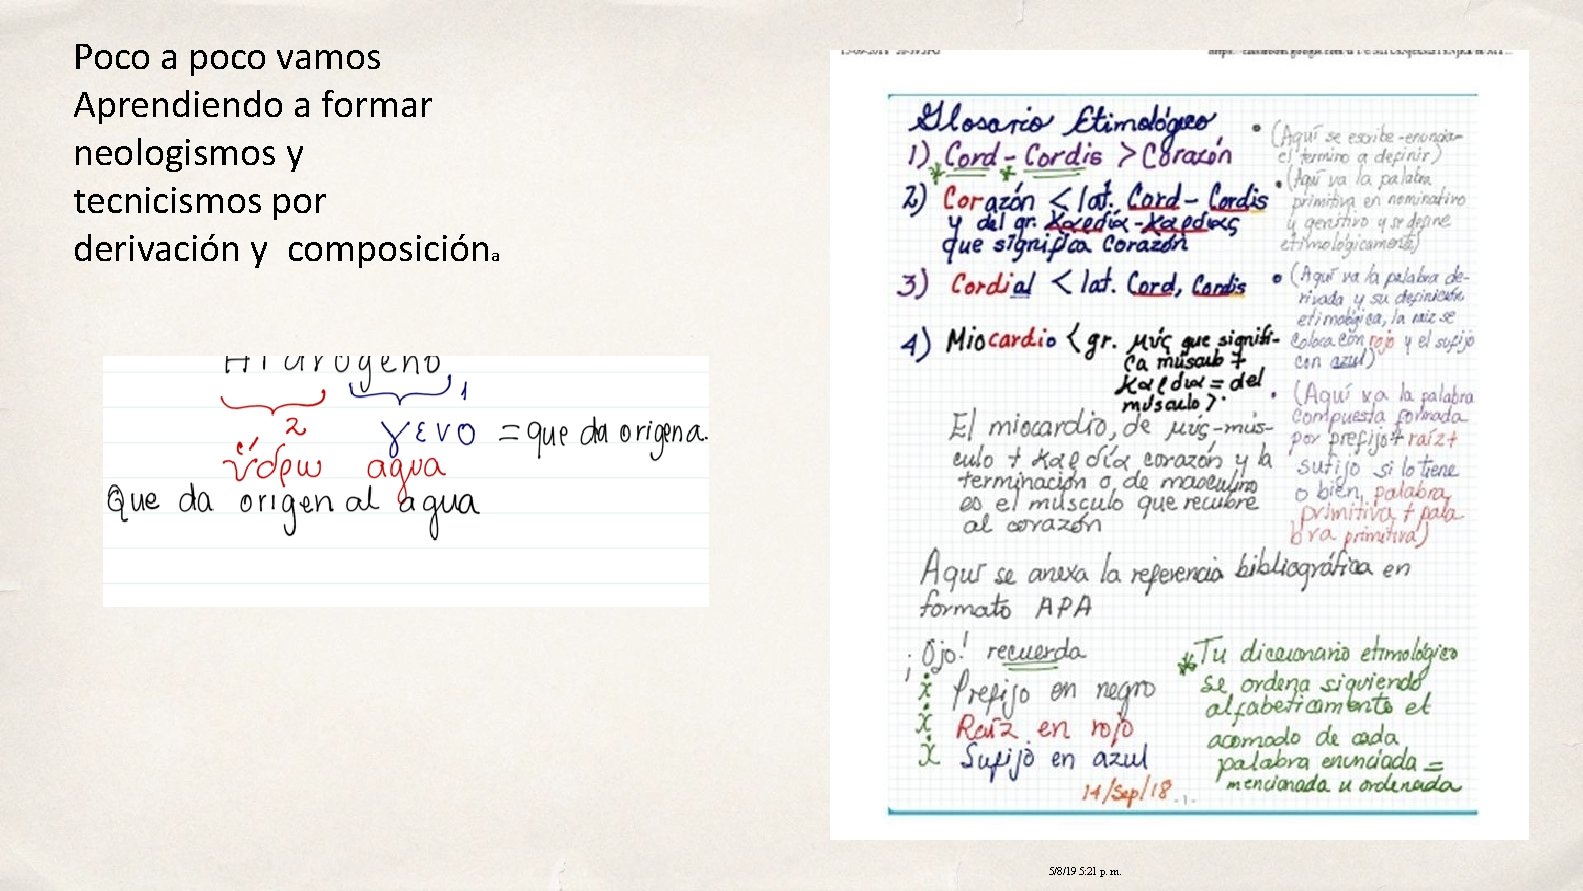 Poco a poco vamos
Aprendiendo a formar
neologismos y
tecnicismos por
derivación y composición a
Hidrogeno
1
2
γενο = que da origena.
agua
Que da origen al agua
Glosario Etimológico
1) Cord - Cordis > Corazón
2) Corazón < lat. Cord - Cordis
y del gr. καρδία - καρδίας
que significa Corazón
3) Cordial < lat. Cord, Cordis
4) Miocardio < gr. μύς que signifi-
ca músculo +
καρδια = del
músculo >.
El miocardio, de μύς-mús-
culo + καρδία corazón y la
terminación o, de masculino
es el músculo que recubre
al corazón
• (Aquí se escribe -enuncia-
el termino a definir)
• (Aquí va la palabra
primitiva en nominativo
y genitivo y se define
etimológicamente)
• (Aquí va la palabra de-
rivada y su definición
etimológica, la raíz se
coloca con rojo y el sufijo
con azul)
• (Aquí va la palabra
compuesta formada
por prefijo + raíz +
sufijo si lo tiene
o bien, palabra
primitiva + pala
bra primitiva)
Aquí se anexa la referencia bibliográfica en
formato APA
¡Ojo! recuerda
Prefijo en negro
Raíz en rojo
Sufijo en azul
14/Sep/18
* Tu diccionario etimológico
se ordena siguiendo
alfabeticamente el
acomodo de cada
palabra enunciada =
mencionada u ordenada
5/8/19 5:21 p. m.